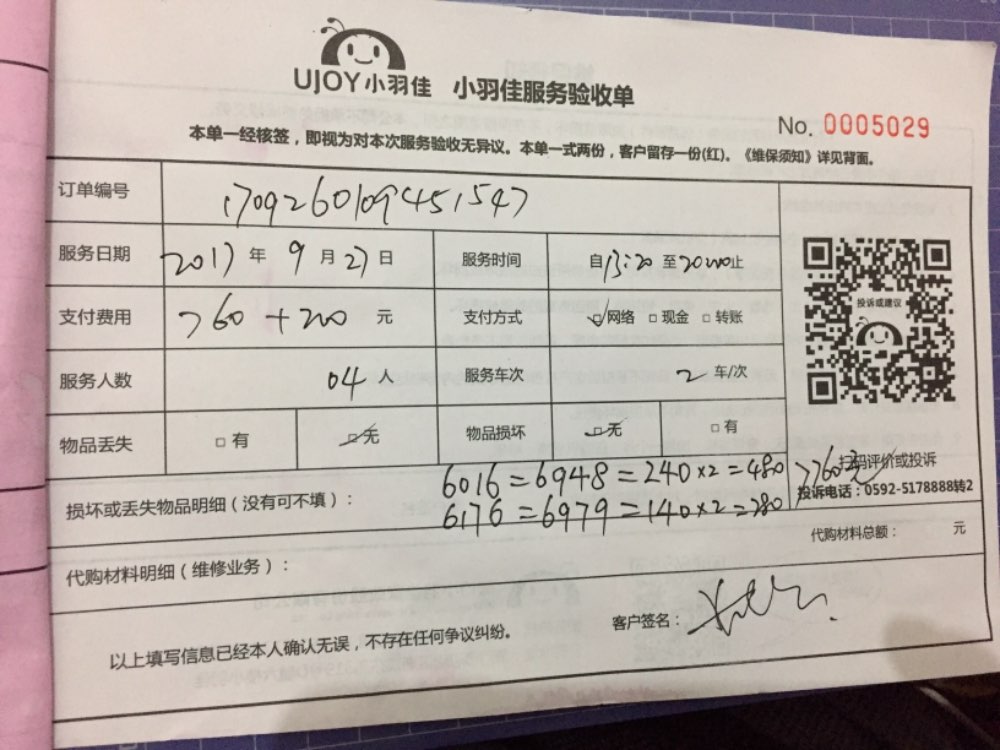 UJOY小羽佳 小羽佳服务验收单
No. 0005029
本单一经核签，即视为对本次服务验收无异议。本单一式两份，客户留存一份(红)。《维保须知》详见背面。
订单编号 1709260109451547
服务日期 2017年 9月27日 服务时间 自13:20至20:00止
投诉或建议
支付费用 760+200 元 支付方式 ☑网络 □现金 □转账
服务人数 04人 服务车次 2车/次
物品丢失 □有 ☑无 物品损坏 ☑无 □有
扫码评价或投诉
投诉电话：0592-5178888转2
损坏或丢失物品明细（没有可不填）： 6016=6948=240×2=480
6176=6979=140×2=280 〉760元
代购材料总额： 元
代购材料明细（维修业务）：
以上填写信息已经本人确认无误，不存在任何争议纠纷。 客户签名：